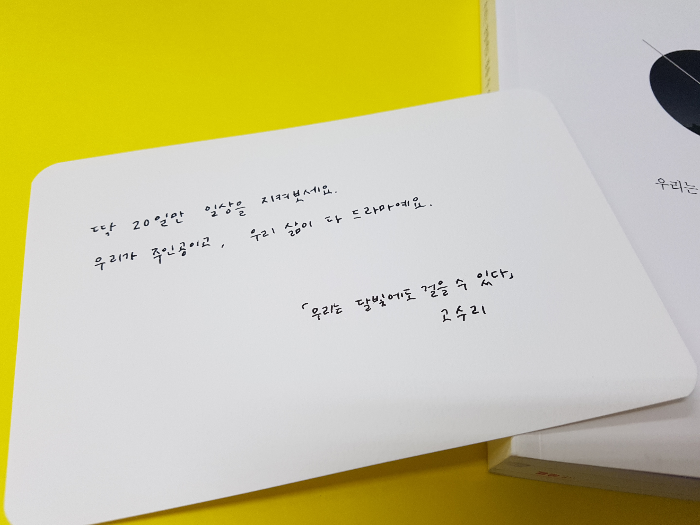 딱 20일만 일상을 지켜보세요.
우리가 주인공이고, 우리 삶이 다 드라마예요.
「우리는 달빛에도 걸을 수 있다」
고수리
우리는